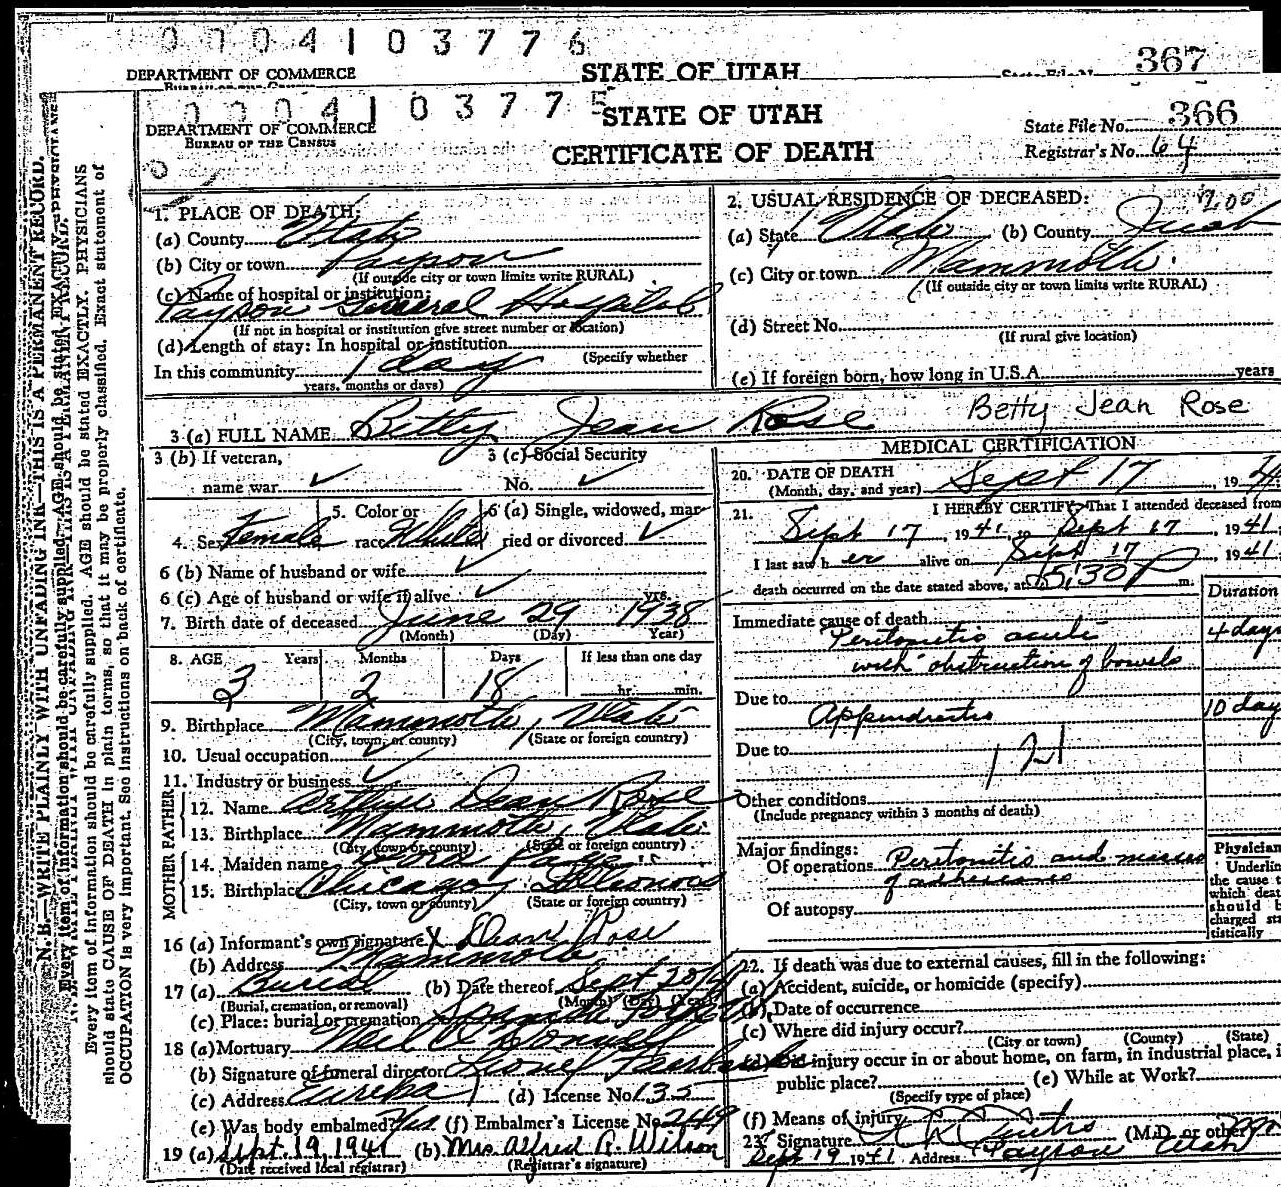 0 0 0 4 1 0 3 7 7 6
367
DEPARTMENT OF COMMERCE
STATE OF UTAH
0 0 0 4 1 0 3 7 7 5
DEPARTMENT OF COMMERCE
BUREAU OF THE CENSUS
STATE OF UTAH
CERTIFICATE OF DEATH
State File No. 366
Registrar's No. 64
N. B. WRITE PLAINLY WITH UNFADING INK—THIS IS A PERMANENT RECORD.
Every item of information should be carefully supplied. AGE should be stated EXACTLY. PHYSICIANS
should state CAUSE OF DEATH in plain terms, so that it may be properly classified. Exact statement of
OCCUPATION is very important. See instructions on back of certificate.
1. PLACE OF DEATH:
(a) County Utah
(b) City or town Payson
(If outside city or town limits write RURAL)
(c) Name of hospital or institution:
Payson General Hospital
(If not in hospital or institution give street number or location)
(d) Length of stay: In hospital or institution
(Specify whether
In this community 1 day
years, months or days)
2. USUAL RESIDENCE OF DECEASED:
(a) State Utah (b) County Juab
(c) City or town Mammoth
(If outside city or town limits write RURAL)
(d) Street No.
(If rural give location)
(e) If foreign born, how long in U.S.A. years
3 (a) FULL NAME Betty Jean Rose Betty Jean Rose
3 (b) If veteran,
name war ✓
3 (c) Social Security
No. ✓
4. Sex Female
5. Color or
race White
6 (a) Single, widowed, mar-
ried or divorced ✓
6 (b) Name of husband or wife ✓
6 (c) Age of husband or wife if alive ✓ yrs.
7. Birth date of deceased June 29 1938
(Month) (Day) Year)
8. AGE Years Months Days If less than one day
3 2 18 hr. min.
9. Birthplace Mammoth, Utah
(City, town, or county) (State or foreign country)
10. Usual occupation ✓
11. Industry or business ✓
FATHER
12. Name Arthur Dean Rose
13. Birthplace Mammoth, Utah
(City, town or county) (State or foreign country)
MOTHER
14. Maiden name
15. Birthplace Chicago, Illionois
(City, town or county) (State or foreign country)
16 (a) Informant's own signature X Dean Rose
(b) Address Mammoth
17 (a) Burial (b) Date thereof Sept 20
(Burial, cremation, or removal) (Month) (Day) (Year)
(c) Place: burial or cremation Spanish Fork
18 (a) Mortuary
(b) Signature of funeral director Fairbanks
(c) Address Eureka (d) License No. 135
(e) Was body embalmed? Yes (f) Embalmer's License No. 249
19 (a) Sept. 19, 1941 (b) Mrs. Alfred R. Wilson
(Date received local registrar) (Registrar's signature)
MEDICAL CERTIFICATION
20. DATE OF DEATH
(Month, day, and year) Sept 17, 19
21. I HEREBY CERTIFY, That I attended deceased from
Sept 17, 1941, to Sept 17, 1941.
I last saw her alive on Sept 17, 1941.
death occurred on the date stated above, at 5:30 P m.
Duration
Immediate cause of death
Peritonitis acute 4 days
with obstruction of bowels
Due to
Appendicitis 10 day
Due to
121
Other conditions
(Include pregnancy within 3 months of death)
Major findings:
Of operations Peritonitis and masses
of adhesions
Of autopsy
Physician
Underlin
the cause t
which deat
should b
charged sta
tistically
22. If death was due to external causes, fill in the following:
(a) Accident, suicide, or homicide (specify)
(b) Date of occurrence
(c) Where did injury occur?
(City or town) (County) (State)
(d) Did injury occur in or about home, on farm, in industrial place, i
public place? (e) While at Work?
(Specify type of place)
(f) Means of injury
23. Signature Curtis (M.D. or other)
Sept 19 1941 Address Payson Utah